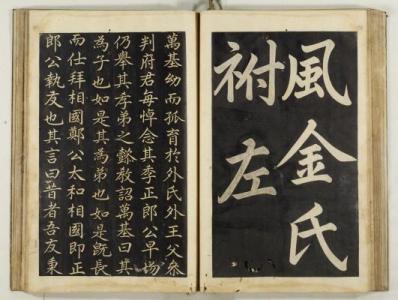 風金氏
祔左
萬基幼而孤育於外氏外王父叅
判府君每悼念其季正郎公早殤
仍擧其孝弟之懿敎詔萬基曰其
為子也如是其為弟也如是旣長
而仕拜相國鄭公太和相國即正
郎公執友也其言曰昔者吾友秉